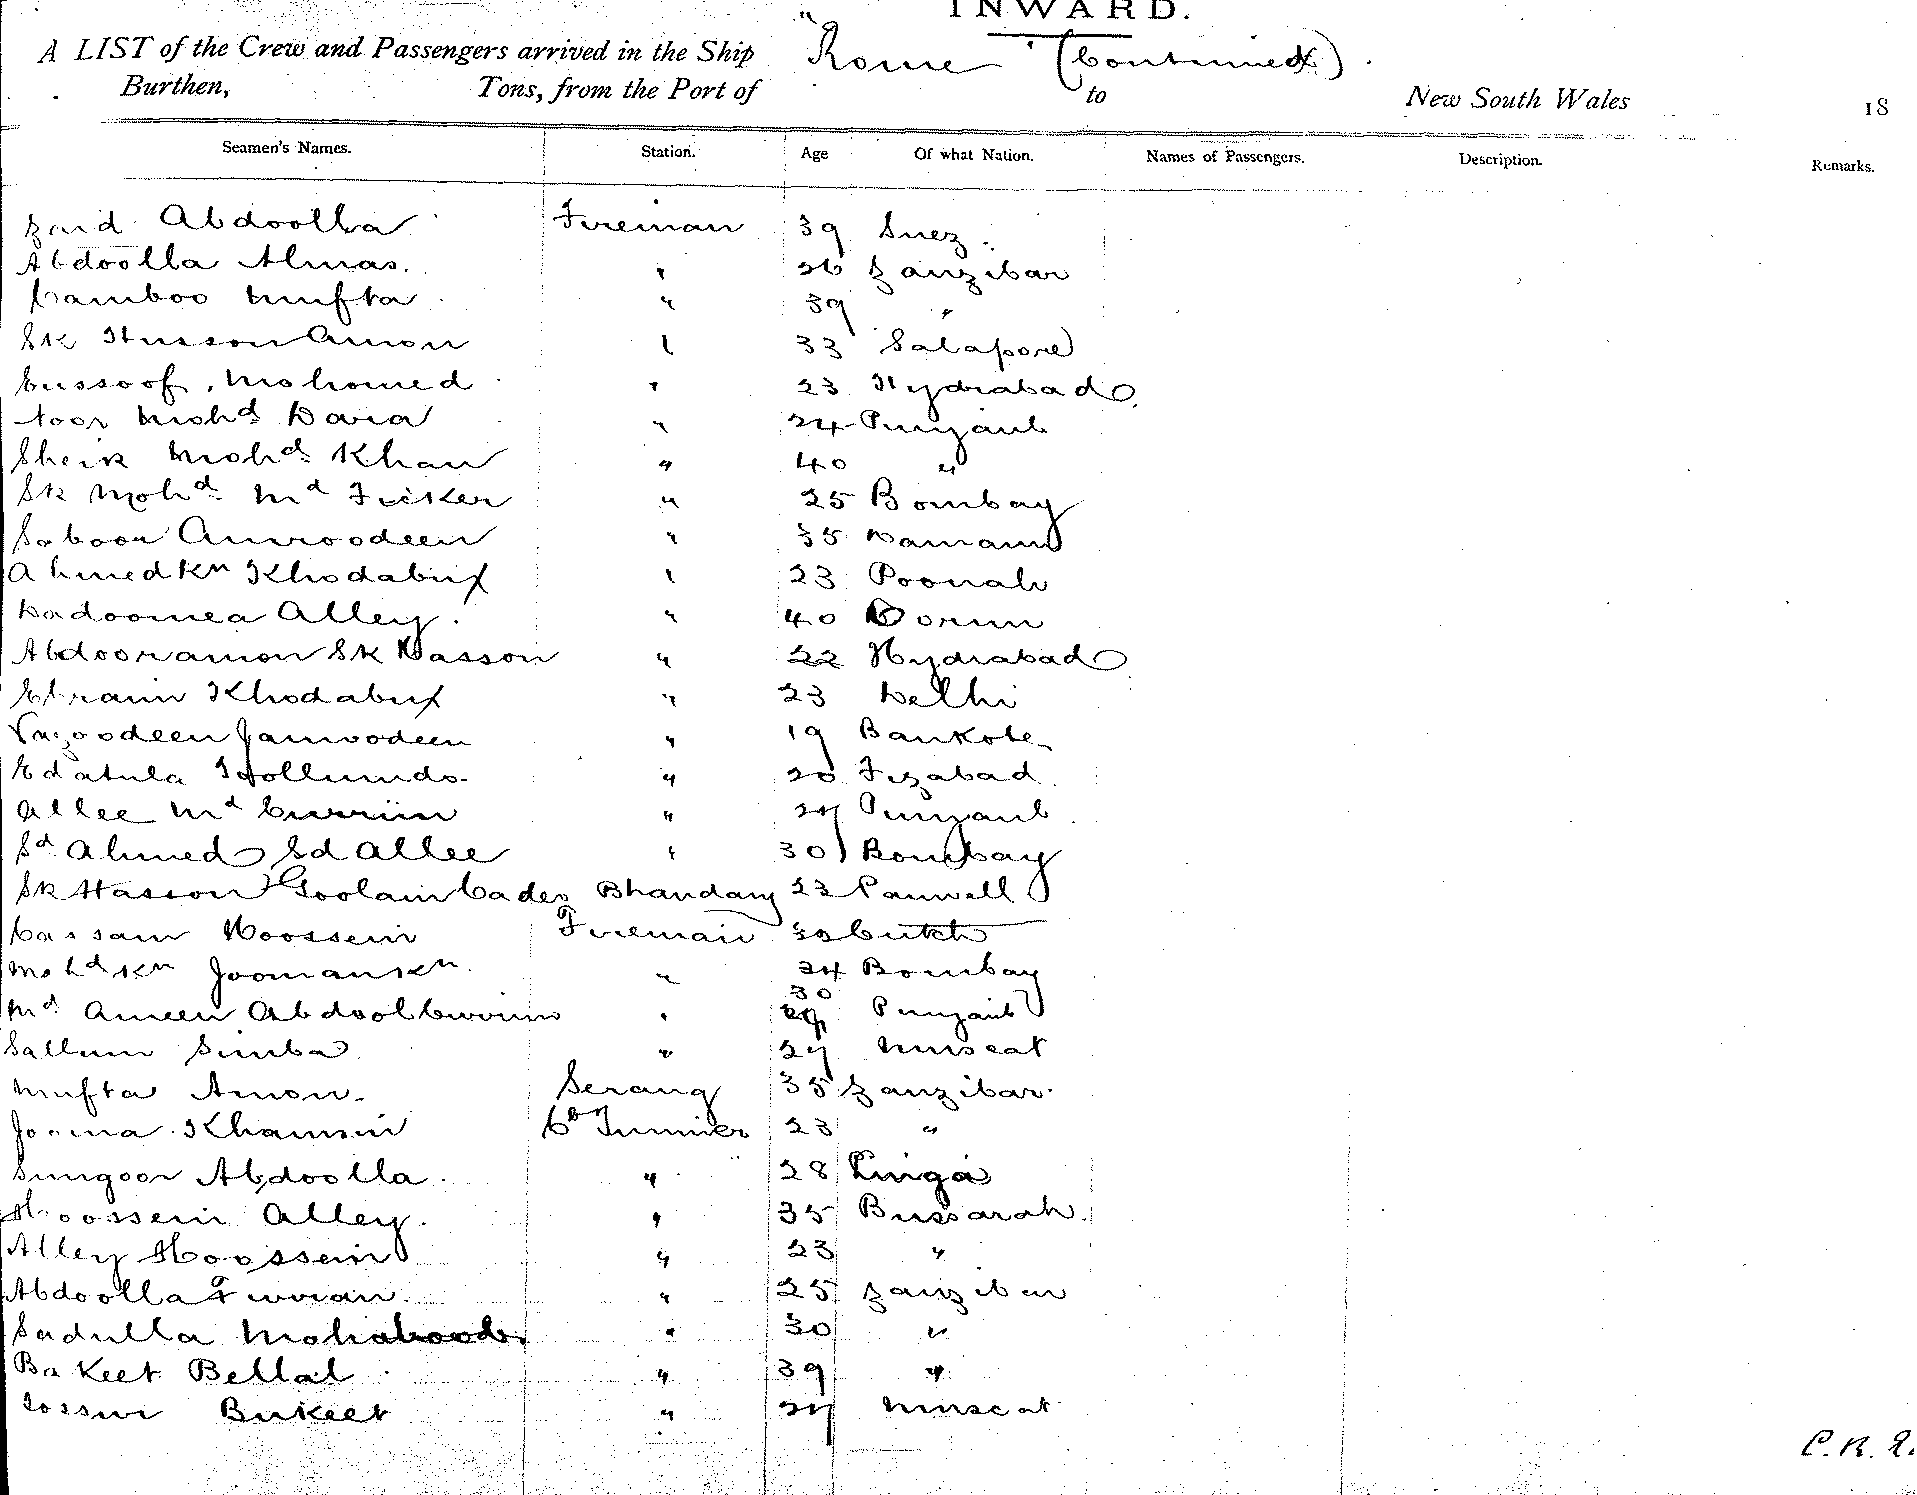 INWARD.
A LIST of the Crew and Passengers arrived in the Ship "Rome" (Continued)
Burthen, Tons, from the Port of to New South Wales 18
Seamen's Names. Station. Age Of what Nation. Names of Passengers. Description. Remarks.
Zaid Abdoolla Fireman 39 Suez
Abdoolla Almas. " 26 Zanzibar
Camboo Mufta " 39 "
Sk Husson Amon " 33 Salapore
Cussoof Mohomed " 23 Hydrabad
Noor Mohd Dava " 24 Punjaub
Sheik Mohd Khan " 40 "
Sk Mohd Md Ficker " 25 Bombay
Saboor Amroodeen " 35 Damaun
Ahmed Kn Khodabux " 23 Poonah
Dadoomea Alley. " 40
Abdooramon Sk Hasson " 22 Hydrabad
Ebraim Khodabux " 23 Delhi
Jamoodeen " 19 Bankote
Edatula " 20 Fizabad
Allee Md Currim " 24 Punjaub
Sd Ahmed Sd Allee " 30 Bombay
Sk Hasson Goolam Cader Bhandary 23 Panwell
Cassam Hoossein Fireman 30 Cutch
Mohd Kn Jooman Kn " 24 Bombay
30
Md Ameen Abdool Currim " 29 Punjaub
Sallum Simba " 29 Muscat
Mufta Amon. Serang 35 Zanzibar
Jooma Khamsin Coal Trimmer 23 "
Sungoor Abdoolla " 28 Linga
Hoossein Alley. " 35 Bussarah
Alley Hoossein " 23 "
Abdoolla " 25 Zanzibar
Sadulla Mohabood " 30 "
Bakeet Bellal " 39 "
Bukeet " 24 Muscat